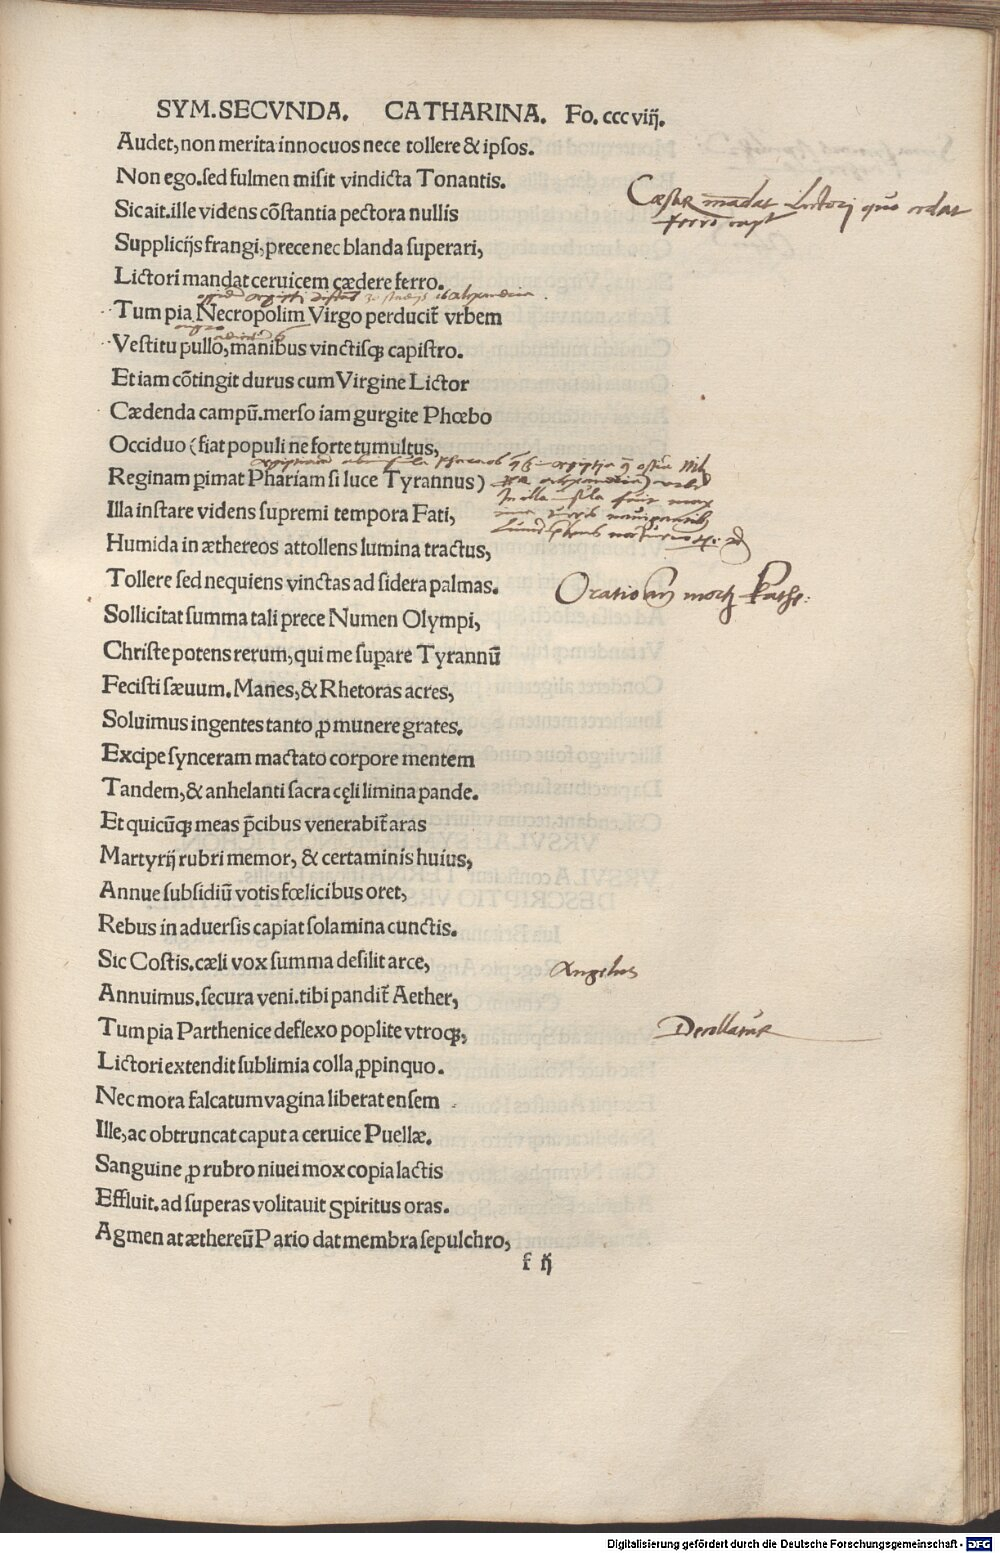 SYM.SECVNDA. CATHARINA. Fo. cccviĳ.
Audet, non merita innocuos nece tollere & ipſos.
Non ego. ſed fulmen miſit vindicta Tonantis.
Sic ait. ille videns cōſtantia pectora nullis
Cæſar mādat Lictorj quo
ferro
Suppliciĳs frangi, prece nec blanda ſuperari,
Lictori mandat ceruicem cædere ferro.
Tum pia Necropolim Virgo perducit̃ vrbem
Veſtitu pullo, manibus vinctiſꝗ capiſtro.
Et iam cōtingit durus cum Virgine Lictor
Cædenda campū. merſo iam gurgite Phœbo
Occiduo (fiat populi ne forte tumultus,
Reginam ꝑimat Phariam ſi luce Tyrannus)
Illa inſtare videns ſupremi tempora Fati,
Humida in æthereos attollens lumina tractus,
Tollere ſed nequiens vinctas ad ſidera palmas.
Oratio
Sollicitat ſumma tali prece Numen Olympi,
Chriſte potens rerum, qui me ſuꝑare Tyrannū
Feciſti ſæuum. Manes, & Rhetoras acres,
Soluimus ingentes tanto ꝓ munere grates.
Excipe ſynceram mactato corpore mentem
Tandem, & anhelanti ſacra cęli limina pande.
Et quicūꝗ meas p̄cibus venerabit̃ aras
Martyriĳ rubri memor, & certaminis huius,
Annue ſubſidiū votis fœlicibus oret,
Rebus in aduerſis capiat ſolamina cunctis.
Sic Coſtis. cæli vox ſumma deſilit arce,
Angelus
Annuimus. ſecura veni. tibi pandit̃ Aether,
Tum pia Parthenice deflexo poplite vtroꝗ,
Decollatur
Lictori extendit ſublimia colla ꝓpinquo.
Nec mora falcatum vagina liberat enſem
Ille, ac obtruncat caput a ceruice Puellæ.
Sanguine ꝓ rubro niuei mox copia lactis
Effluit. ad ſuperas volitauit Spiritus oras.
Agmen at æthereū Pario dat membra ſepulchro,
f ĳ
Digitalisierung gefördert durch die Deutsche Forschungsgemeinschaft - DFG